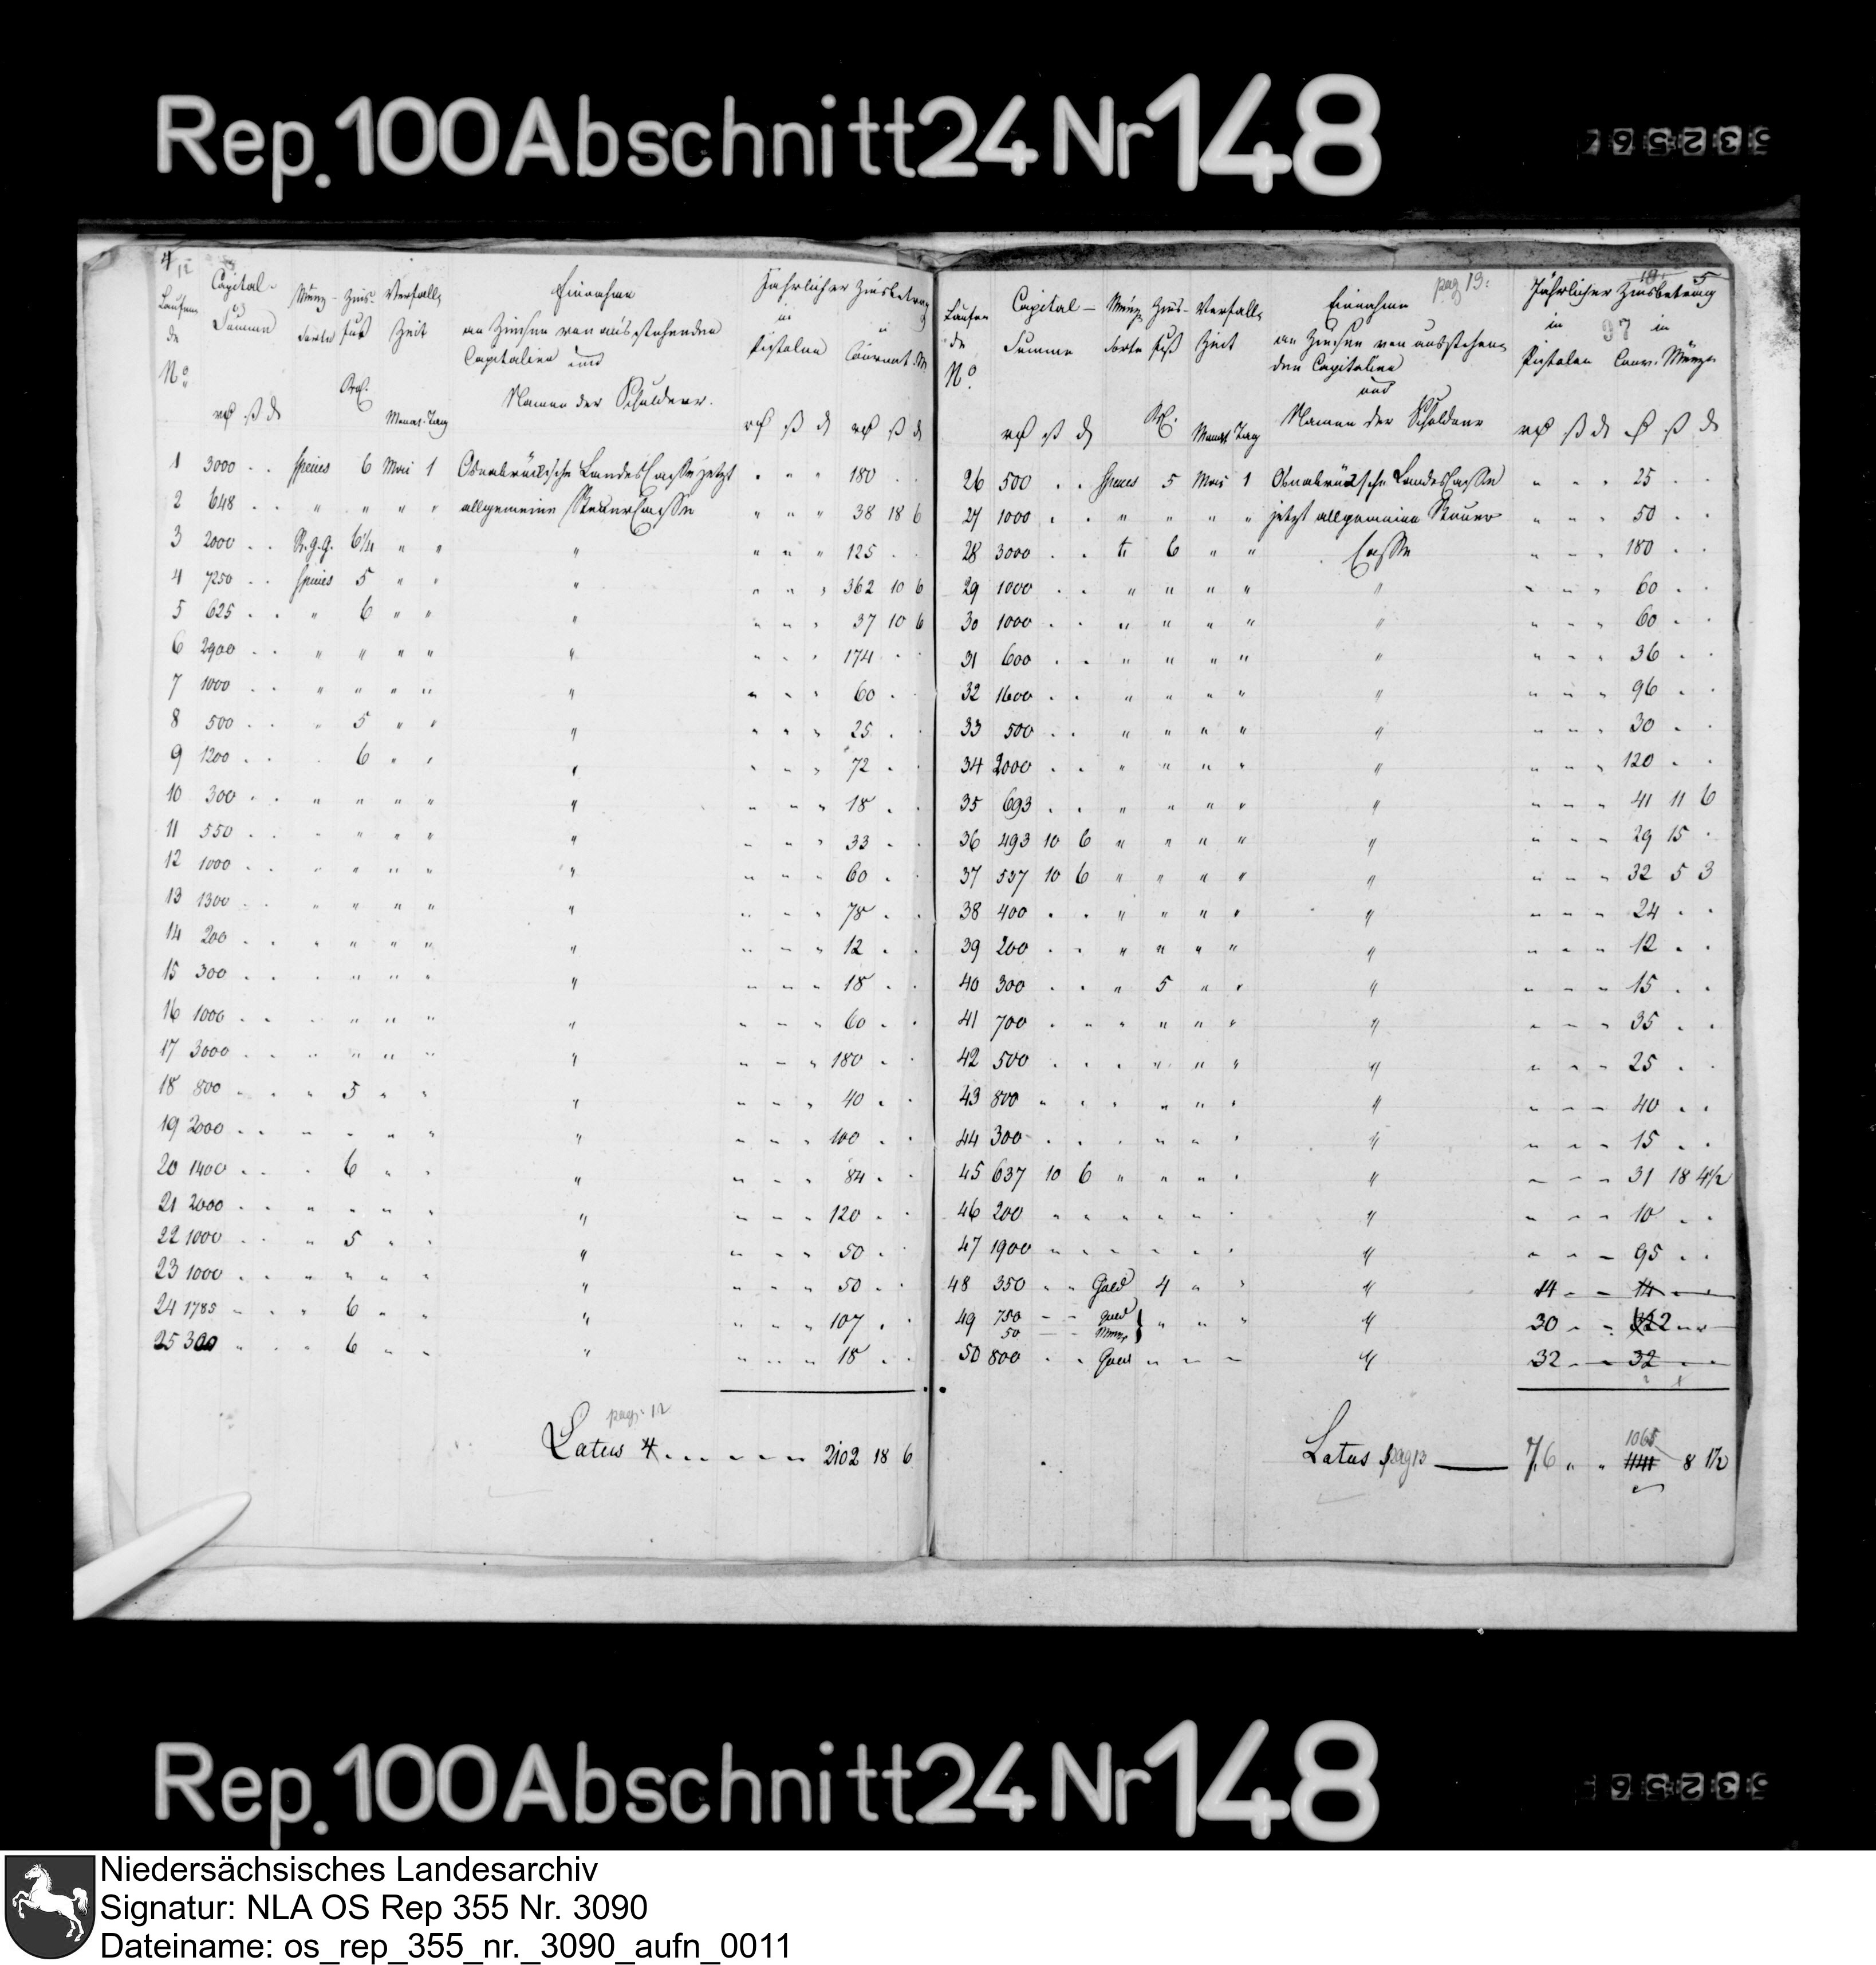 Rep. 100 Abschnitt 24 Nr 148
4
12
Laufen
de
No
Capital-
Summe
rthl ß d
Münz-
Sorte
Zins-
fuß
Proc.
Verfall-
Zeit
Monat. Tag
Einnahme
an Zinsen von ausstehenden
Capitalien und
Namen der Schuldner.
Jährlicher Zinsbetrag
in
Pistolen
in
Courant. M
rthl ß d rthl ß d
1 3000 . . Species 6 Mai 1 Osnabrücksche Landes Casse jetzt " " " 180 . .
2 648 . . " " " " allgemeine Steuer Casse " " " 38 18 6
3 2000 . . N.g.g. 6¼ " " " " " " 125 . .
4 7250 . . Species 5 " " " " " " 362 10 6
5 625 . . " 6 " " " " " " 37 10 6
6 2900 . . " " " " " " " " 174 . .
7 1000 . . " " " " " " " " 60 . .
8 500 . . " 5 " " " " " " 25 . .
9 1200 . . . 6 " " " " " " 72 . .
10 300 . . " " " " " " " " 18 . .
11 550 . . " " " " " " " " 33 . .
12 1000 . . " " " " " " " " 60 . .
13 1300 . . " " " " " " " " 78 . .
14 200 . . " " " " " " " " 12 . .
15 300 . . " " " " " " " " 18 . .
16 1000 . . " " " " " " " " 60 . .
17 3000 . . " " " " " " " " 180 . .
18 800 . . " 5 " " " " " " 40 . .
19 2000 . . " " " " " " " " 100 . .
20 1400 . . " 6 " " " " " " 84 . .
21 2000 . . " " " " " " " " 120 . .
22 1000 . . " 5 " " " " " " 50 . .
23 1000 . . " " " " " " " " 50 . .
24 1785 . . " 6 " " " " " " 107 . .
25 300 . . " 6 " " " " " " 18 . .
pag. 12
Latus 4 . . . . . . 2102 18 6
pag 13.
5
97
Laufen
de
No
Capital-
Summe
rthl ß d
Münz
Sorte
Zins-
fuß
Proc.
Verfall-
Zeit
Monat Tag
Einnahme
an Zinsen von ausstehen-
den Capitalien
und
Namen der Schuldner
Jährlicher Zinsbetrag
in
Pistolen
in
Conv. Münze
rthl ß d rthl ß d
26 500 . . Species 5 Mai 1 Osnabrücksche Landes Casse " " " 25 . .
27 1000 . . " " " " jetzt allgemeine Steuer " " " 50 . .
28 3000 . . " 6 " " Casse " " " 180 . .
29 1000 . . " " " " " " " " 60 . .
30 1000 . . " " " " " " " " 60 . .
31 600 . . " " " " " " " " 36 . .
32 1600 . . " " " " " " " " 96 . .
33 500 . . " " " " " " " " 30 . .
34 2000 . . " " " " " " " " 120 . .
35 693 . . " " " " " " " " 41 11 6
36 493 10 6 " " " " " " " " 29 15 .
37 537 10 6 " " " " " " " " 32 5 3
38 400 . . " " " " " " " " 24 . .
39 200 . . " " " " " " " " 12 . .
40 300 . . " 5 " " " " " " 15 . .
41 700 . . " " " " " " " " 35 . .
42 500 . . " " " " " " " " 25 . .
43 800 . . " " " " " " " " 40 . .
44 300 . . " " " " " " " " 15 . .
45 637 10 6 " " " " " " " " 31 18 4½
46 200 . . " " " " " " " " 10 . .
47 1900 . . " " " " " " " " 95 . .
48 350 . . Gold 4 " " " 14 - - 14 . .
49 750 - - Gold " " " " 30 - -
50 - - Münze
2
50 800 . . Gold " " " " 32 - - 32 . .
Latus pag 13 76 " " 1065 8 1½
Rep. 100 Abschnitt 24 Nr 148
Niedersächsisches Landesarchiv
Signatur: NLA OS Rep 355 Nr. 3090
Dateiname: os_rep_355_nr._3090_aufn_0011